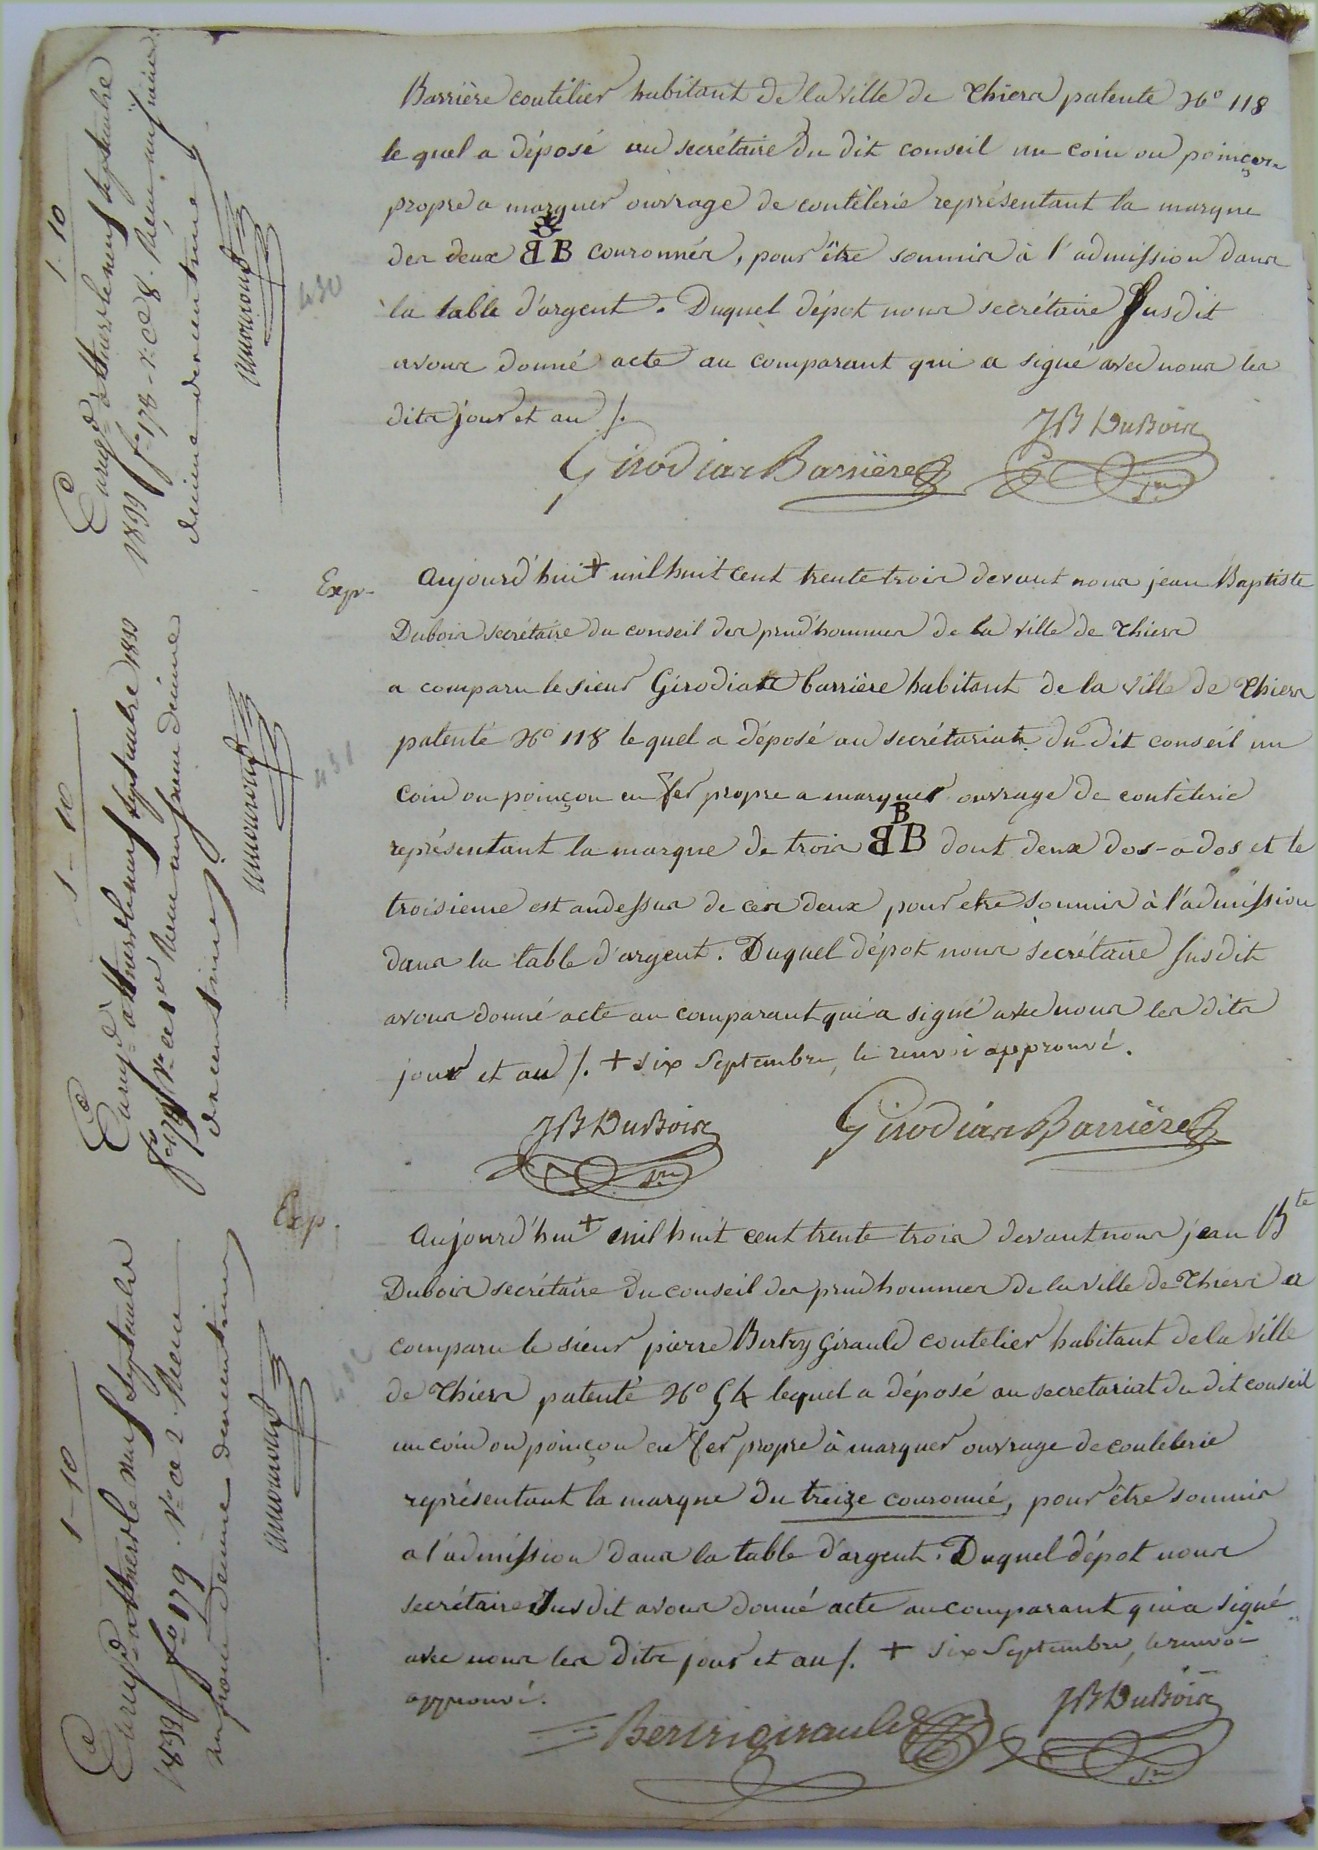 Barrière coutelier habitant de la ville de Thiers patenté N° 118
lequel a déposé au secrétaire du dit conseil un coin ou poinçon
propre a marquer ouvrage de coutelerie représentant la marque
des deux BB couronnés, pour être soumis à l'admission dans
la table d'argent. Duquel dépot nous secrétaire susdit
avons donné acte au comparant qui a signé avec nous les
dits jour et an /.
JB DuBois
Girodias Barrière
Sre
Exp.
430
Aujourd'hui + mil huit cent trente trois devant nous jean Baptiste
Dubois secrétaire du conseil des prud'hommes de la ville de Thiers
a comparu le sieur Girodias barrière habitant de la ville de Thiers
patenté N° 118 lequel a déposé au secrétariat du dit conseil un
431
coin ou poinçon en fer propre a marquer ouvrage de coutelerie
représentant la marque de trois BBB dont deux dos-a dos et le
troisieme est audessus de ces deux pour etre soumis à l'admission
dans la table d'argent. Duquel dépot nous secrétaire susdit
avons donné acte au comparant qui a signé avec nous les dits
jour et an /. + six Septembre, le renvoi approuvé.
JB DuBois Girodias Barrière
Sre
Exp.
Aujourd'hui + mil huit cent trente trois devant nous jean Bte
Dubois secrétaire du conseil des prudhommes de la ville de Thiers a
comparu le sieur pierre Bertry Girauld coutelier habitant de la ville
de Thiers patenté N° 54 lequel a déposé au secretariat du dit conseil
un coin ou poinçon en fer propre à marquer ouvrage de coutelerie
représentant la marque du treize couronné, pour être soumis
a l'admission dans la table d'argent. Duquel dépot nous
secrétaire susdit avons donné acte au comparant qui a signé
avec nous les dits jour et an /. + six Septembre, le renvoi
approuvé.
JB DuBois
Bertrigirauld
Sre
1-10
Enregé à Thiers le neuf Septembre
f° 178
1-10
Enregé à Thiers le neuf septembre 1833
1-10
Enregé à Thiers le neuf Septembre
1833 f° 179 Vo ce 2 Reçu
un franc decime